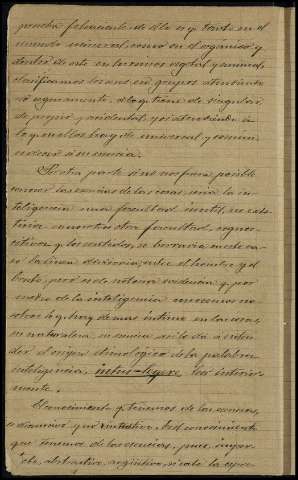 prueba fehaciente de ello es q. tanto en el
mundo mineral, como en el organico y
dentro de este en los reinos vegetal y animal,
clasificamos los seres en grupos atendiendo
no seguramente, a lo q. tiene de singular,
de propio y accidental, y si atendiendo a
lo q. en ellos hay de universal y comun,
es decir á su esencia.
Por otra parte si no nos fuera posible
conocer las esencias de las cosas, seria la in-
teligencia una facultad inutil, no exis-
tiria en nosotros otra facultad cognos-
citiva q. los sentidos, se borraria en este ca-
so la linea divisoria entre el hombre y el
bruto, pero es de notoria evidencia q. por
medio de la inteligencia conocemos no-
sotros lo q. hay de mas intimo en las cosas,
su naturaleza, su esencia, asi lo da á enten-
der el origen etimologico de la palabra
inteligencia, intus-legere, leer interior-
mente.
El conocimiento q. tenemos de las esencias,
es discursivo que intuitivo. Es el conocimiento
que tenemos de las esencias, pues, imper-
fecto, abstractivo, negativo,